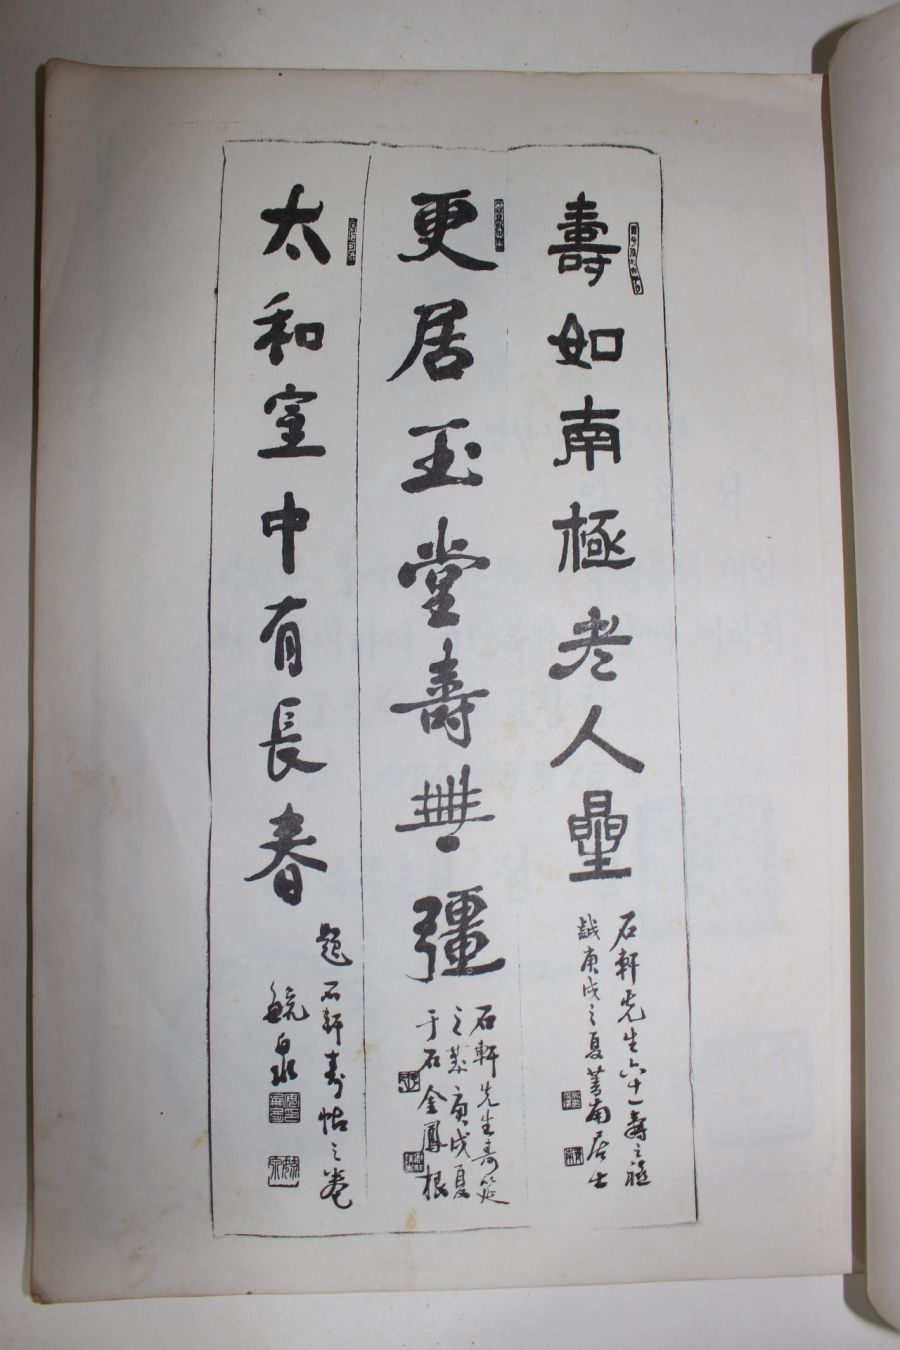 壽如南極老人星
石軒先生六十一壽之
庚戌之夏菁南居士
更居玉堂壽無疆
石軒先生壽筵
之慶庚戌夏
于石金鳳根
太和室中有長春
題石軒壽帖之卷
毓泉